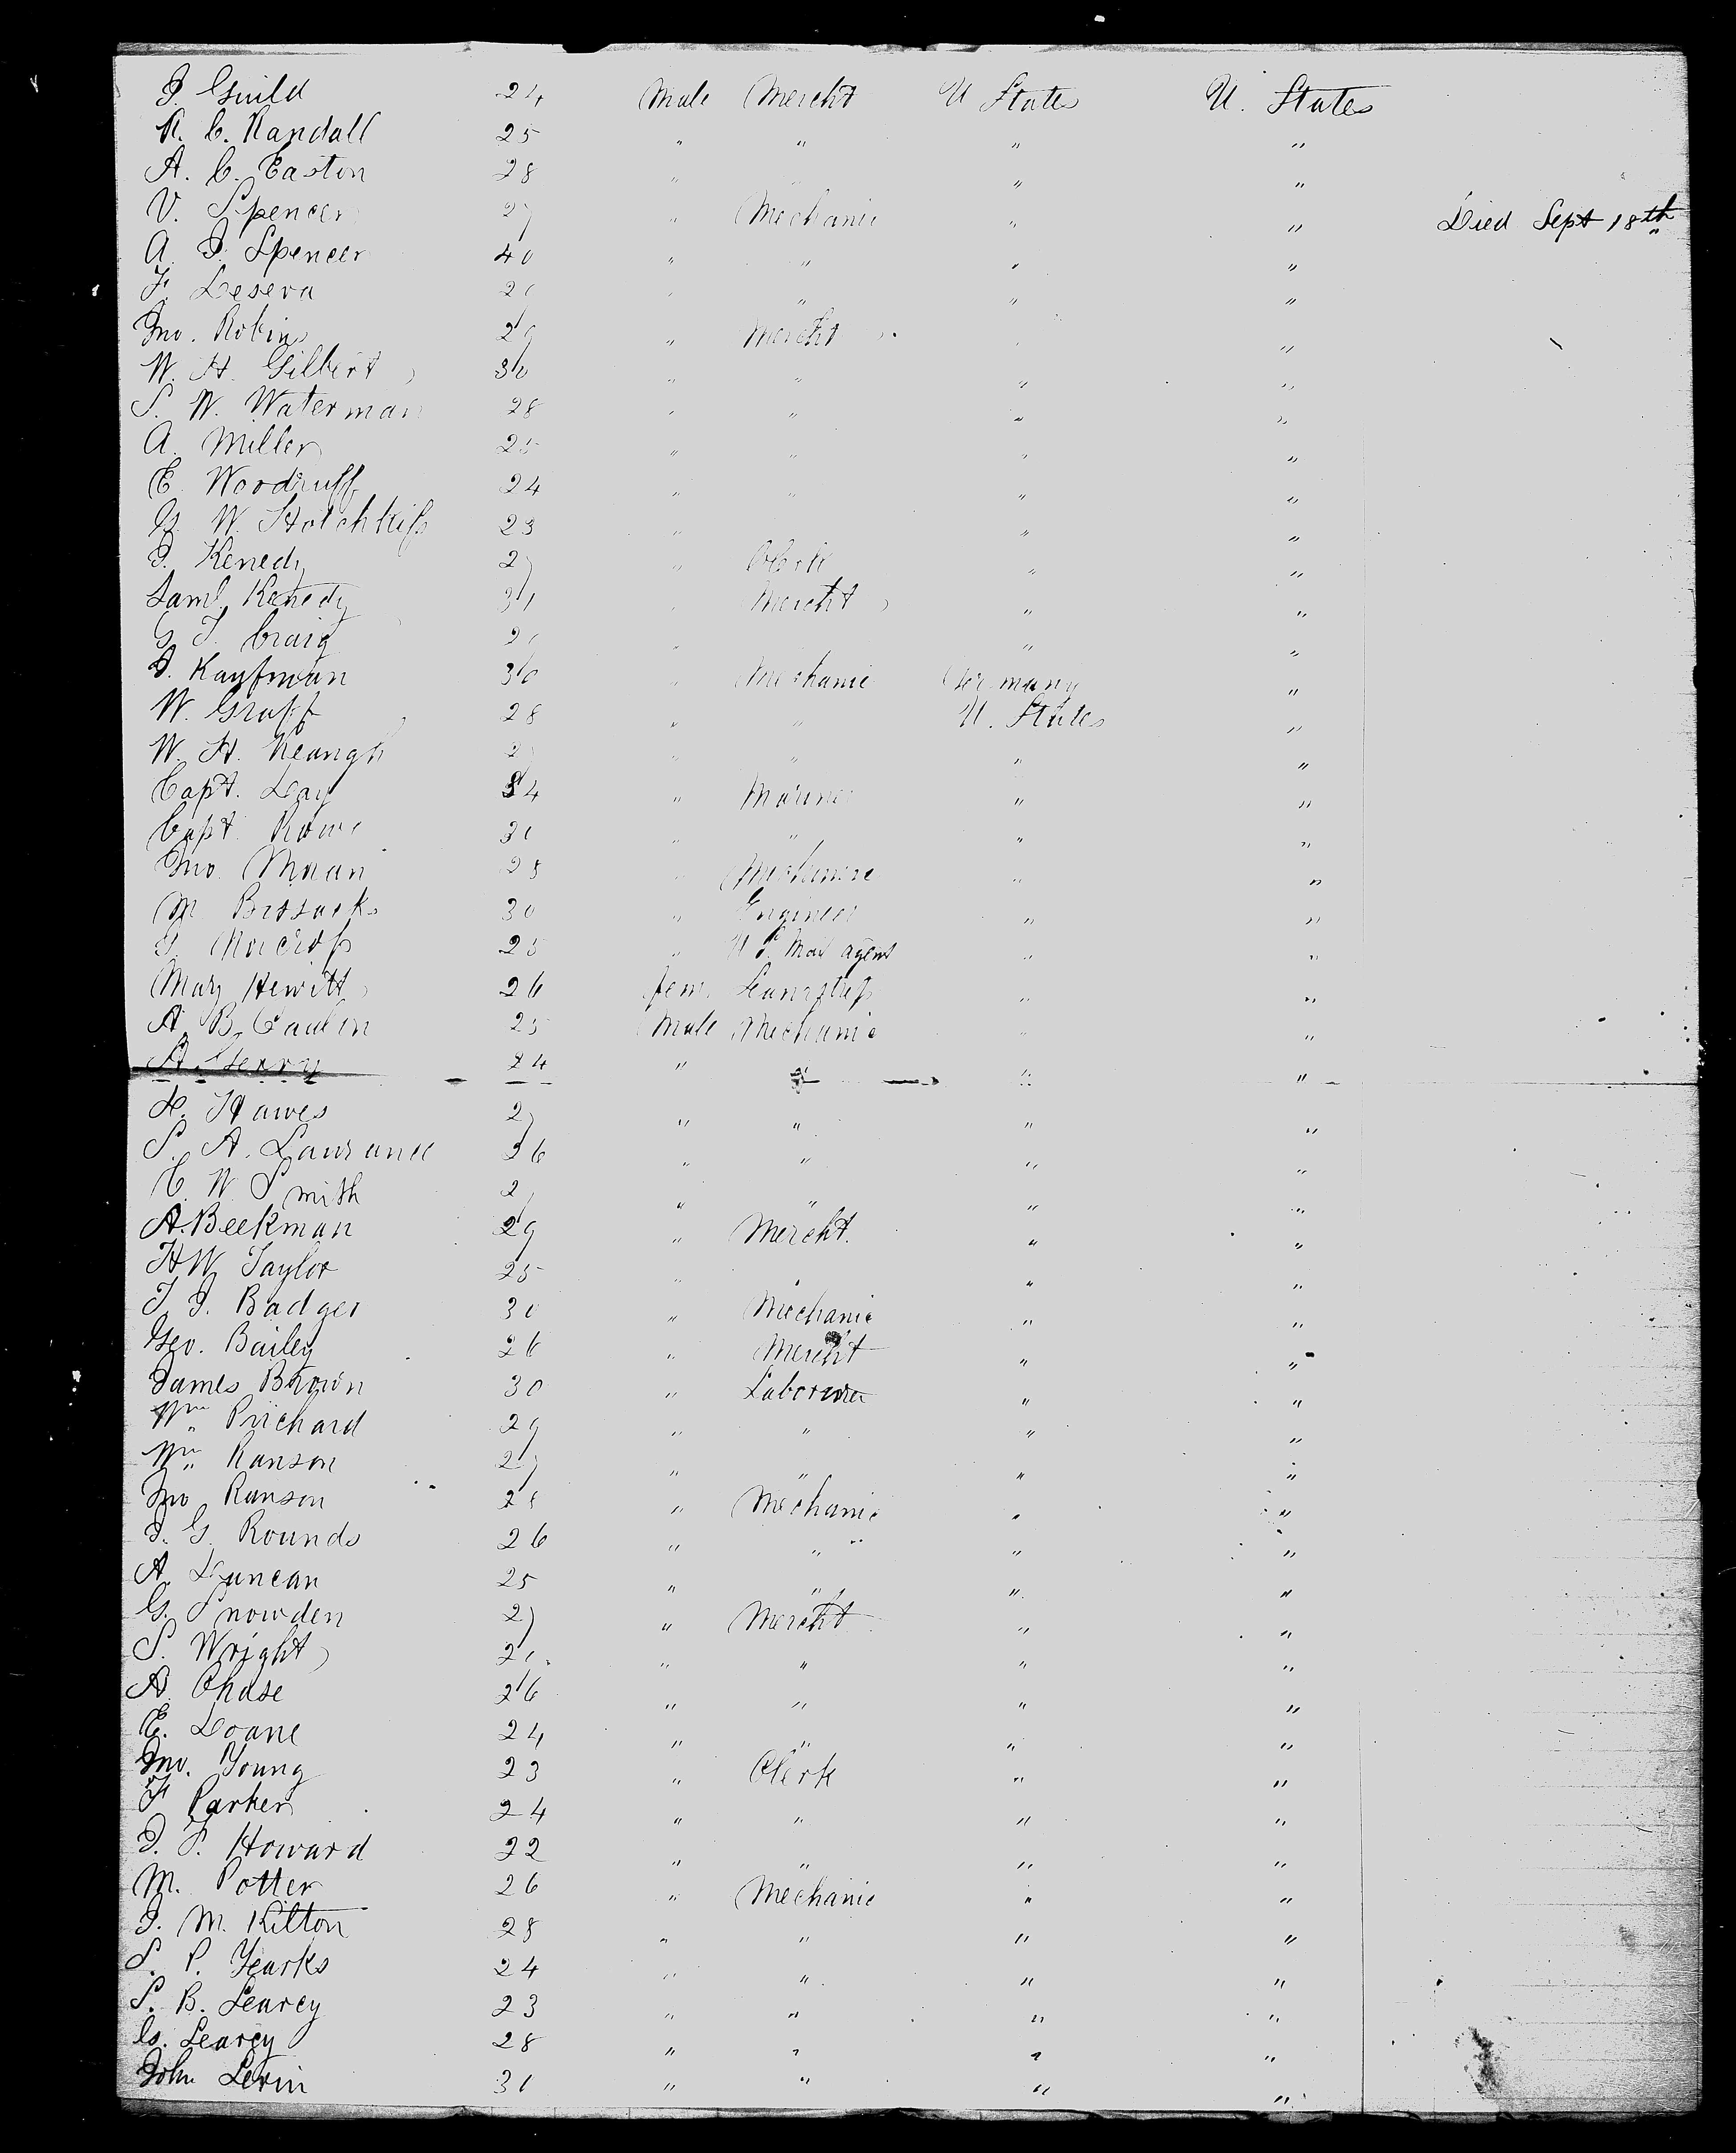 J. Guild 24 Male Mercht U States U. States
R. C. Randall 25 " " " "
A. C. Easton 28 " " " "
V. Spencer 27 " Mechanic " " Died Sept 18th
A. J. Spencer 40 " " " "
F. Deseva " " " "
Jno. Robins 29 " Mercht "
W. H. Gilbert 30 " " " "
S. W. Waterman 28 " " " "
A. Miller 25 " " " "
E. Woodruff 24 " " " "
G. W. Hotchkiss 23 " " "
J. Kenedy 27 " Clerk " "
Saml. Kenedy 31 " Mercht " "
G. T. Craig " " "
J. Kaufman 30 " Mechanic Germany "
W. Graff 28 " " U. States "
W. H. Keangh " " " "
Capt. Day 34 " Mariner " "
Capt. Rowe 30 " " " "
Jno. Moran 28 " Mechanic " "
M. 30 " Engineer " "
Norcross 25 " U S. Mail agent " "
Mary Hewitt 26 fem. Seamstress " "
A. B. 25 Male Mechanic " "
A. Gerry 24 " " " "
H. Hawes 27 " " " "
S. A. Laurance 26 " " " "
C. W. Smith " " " "
A. Beekman 29 " Mercht. " "
H W Taylor 25 " " " "
T. J. Badger 30 " Mechanic " "
Geo. Bailey 26 " Mercht " "
James Brown 30 " Laborer " "
Wm Prichard 29 " " " "
Wm Ranson 27 " " " "
Jno Ranson 28 " Mechanic " "
J. G. Rounds 26 " " " "
A. Duncan 25 " " " "
G. Snowden 27 " Mercht " "
S. Wright " " " "
A. Chase 26 " " " "
E. Doane 24 " " " "
Jno. Young 23 " Clerk " "
F Parker 24 " " " "
J. F. Howard 22 " " " "
M. Potter 26 " Mechanic " "
J. M. Kilton 28 " " " "
S. P. Yearks 24 " " " "
S. B. Searcy 23 " " " "
Searcy 28 " " " "
John Levin 30 " " " "